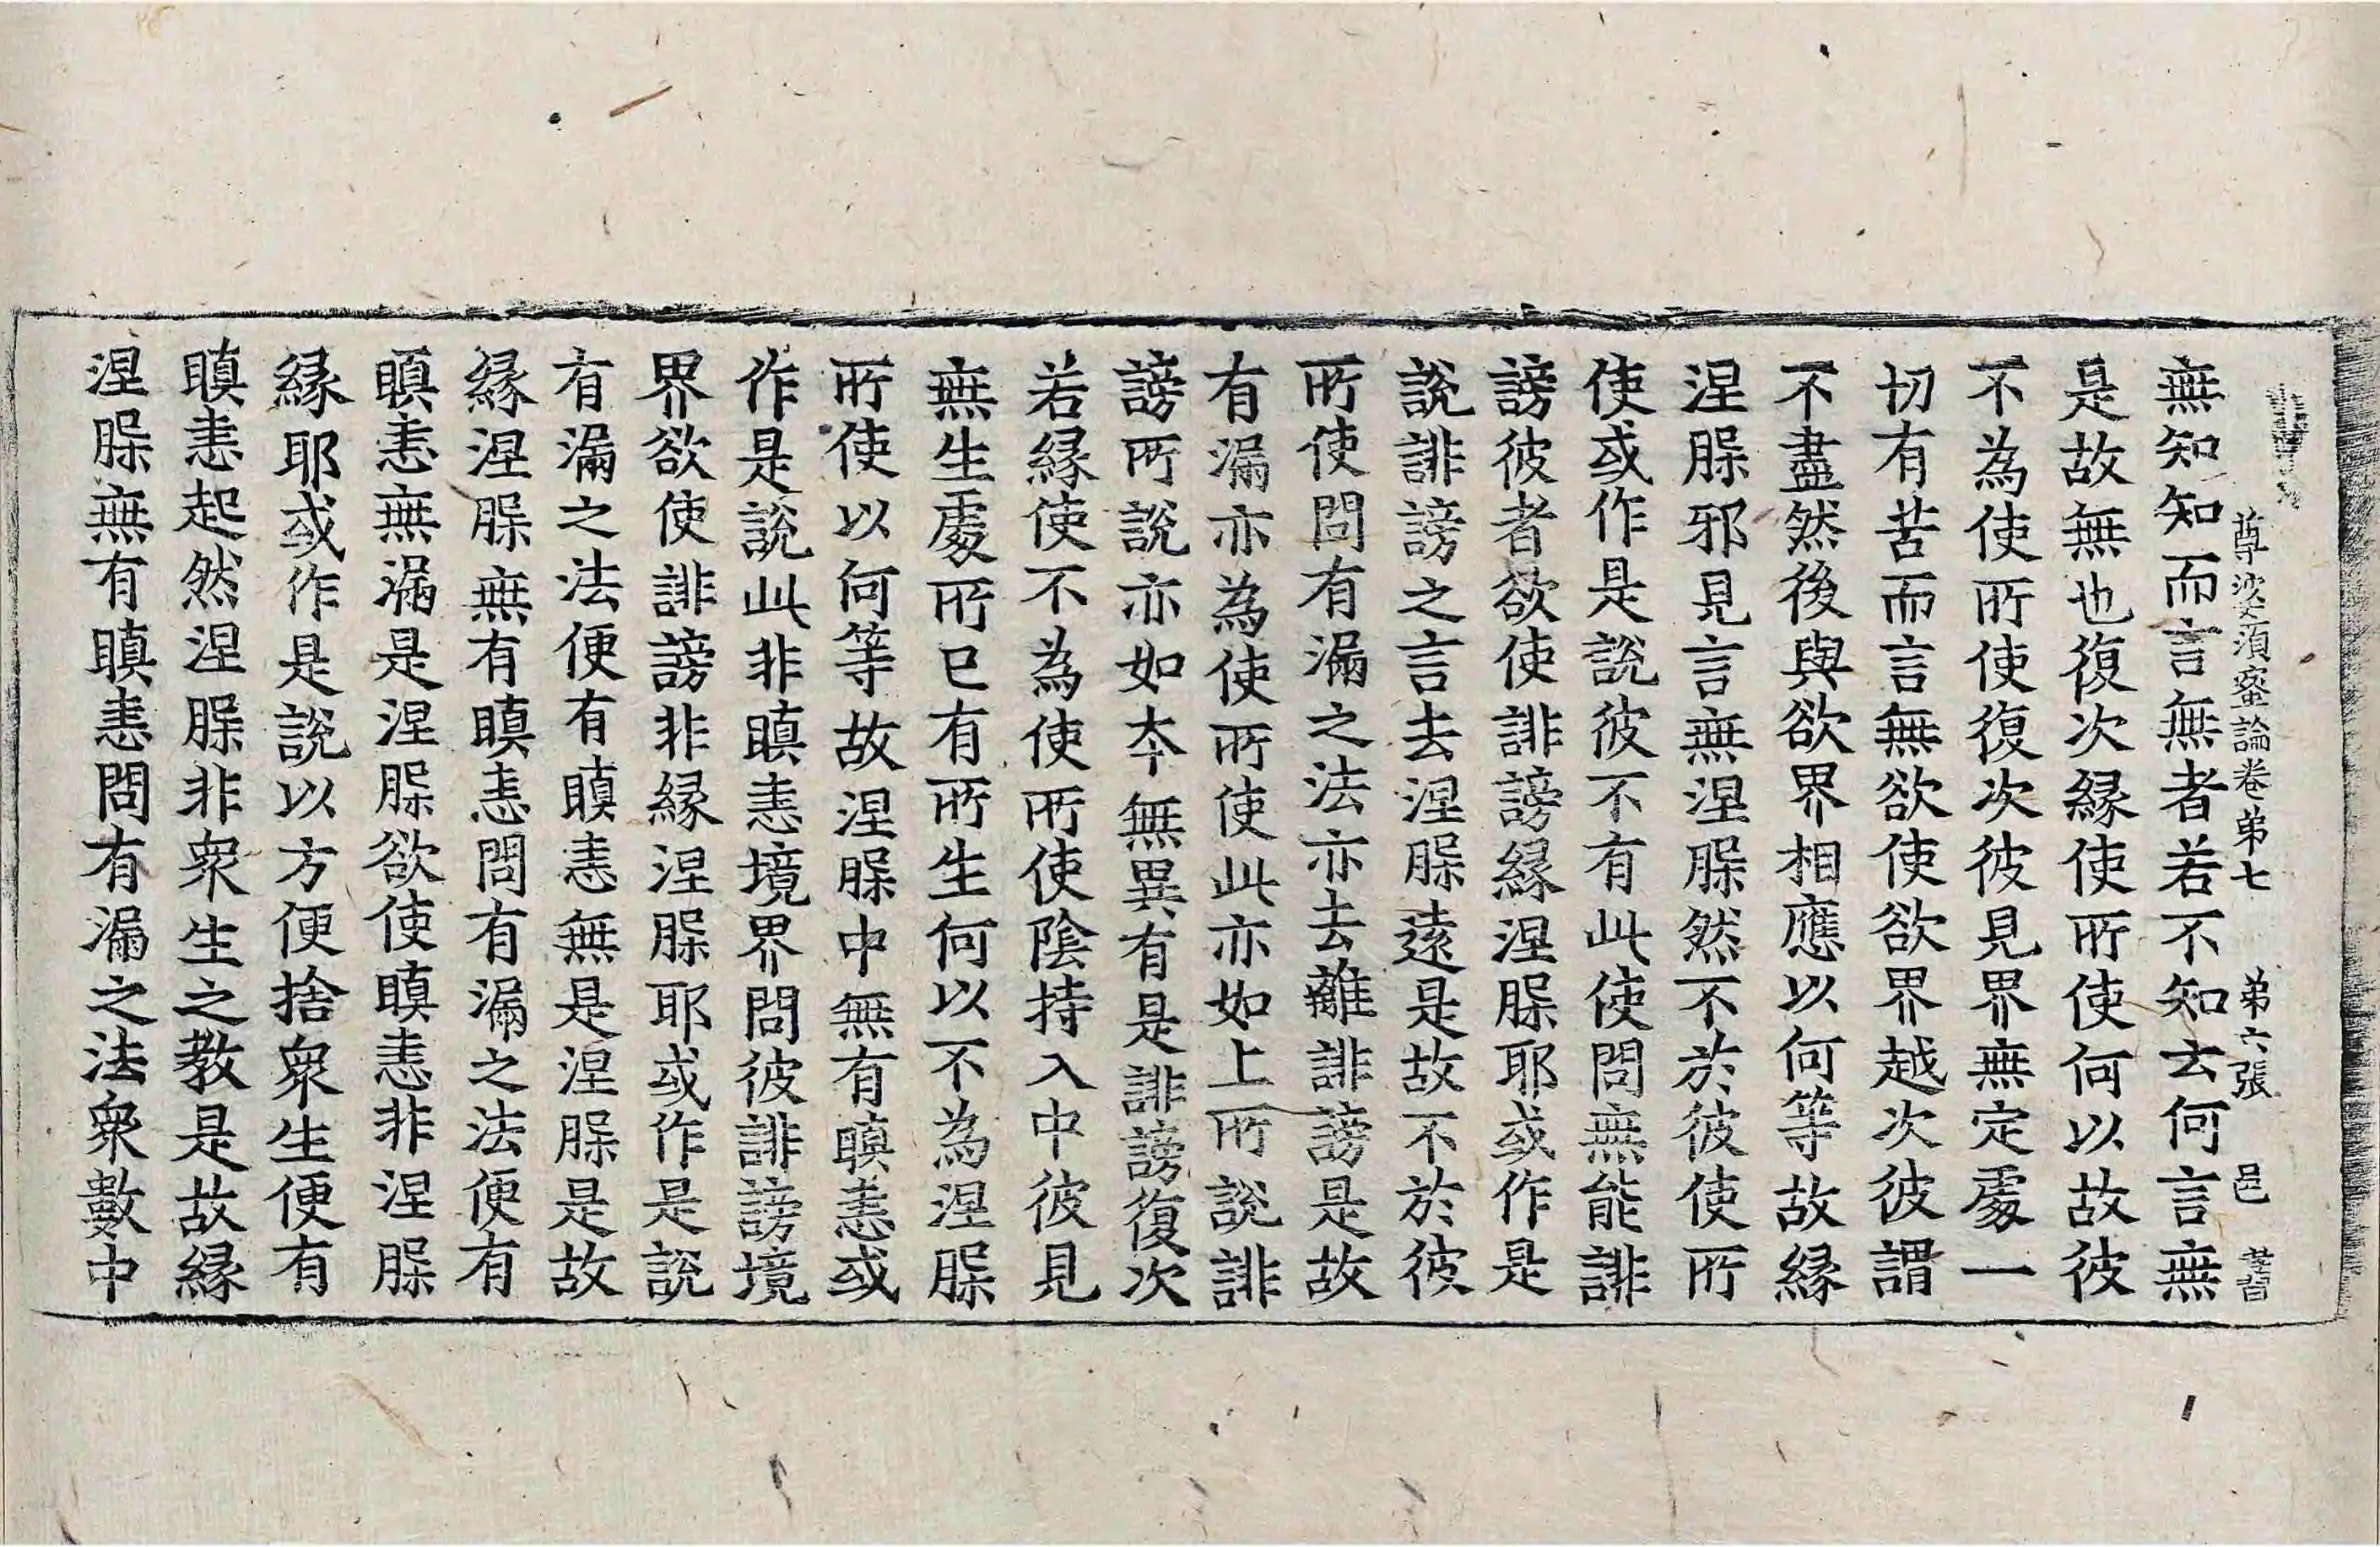 尊婆湏蜜論卷苐七 苐六張 邑
無知知而言無者若不知云何言無
是故無也復次縁使所使何以故彼
不為使所使復次彼見界無定處一
切有苦而言無欲使欲界越次彼謂
不盡然後與欲界相應以何等故縁
涅槃邪見言無涅槃然不於彼使所
使或作是說彼不有此使問無能誹
謗彼者欲使誹謗縁涅槃耶或作是
說誹謗之言去涅槃遠是故不於彼
所使問有漏之法亦去離誹謗是故
有漏亦為使所使此亦如上所說誹
謗所說亦如本無異有是誹謗復次
若縁使不為使所使陰持入中彼見
無生處所已有所生何以不為涅槃
所使以何等故涅槃中無有瞋恚或
作是說此非瞋恚境界問彼誹謗境
界欲使誹謗非縁涅槃耶或作是說
有漏之法便有瞋恚無是涅槃是故
縁涅槃無有瞋恚問有漏之法便有
瞋恚無漏是涅槃欲使瞋恚非涅槃
縁耶或作是說以方便捨衆生便有
瞋恚起然涅槃非衆生之教是故縁
涅槃無有瞋恚問有漏之法衆數中